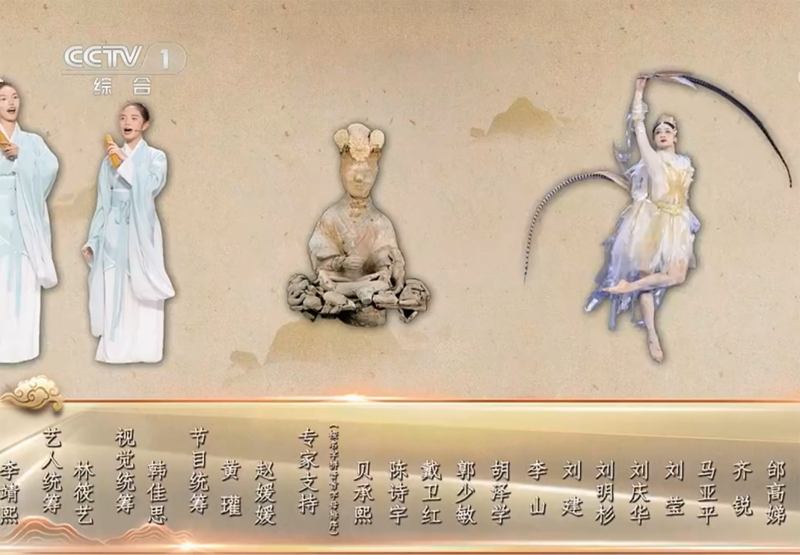 CCTV 1
综合
李靖熙
艺人统筹
林筱艺
视觉统筹
韩佳思
节目统筹
黄瓘
赵媛媛
专家支持
贝承熙
陈诗宇
戴卫红
郭少敏
胡泽学
李山
刘建
刘明杉
刘庆华
刘莹
马亚平
齐锐
邰高娣